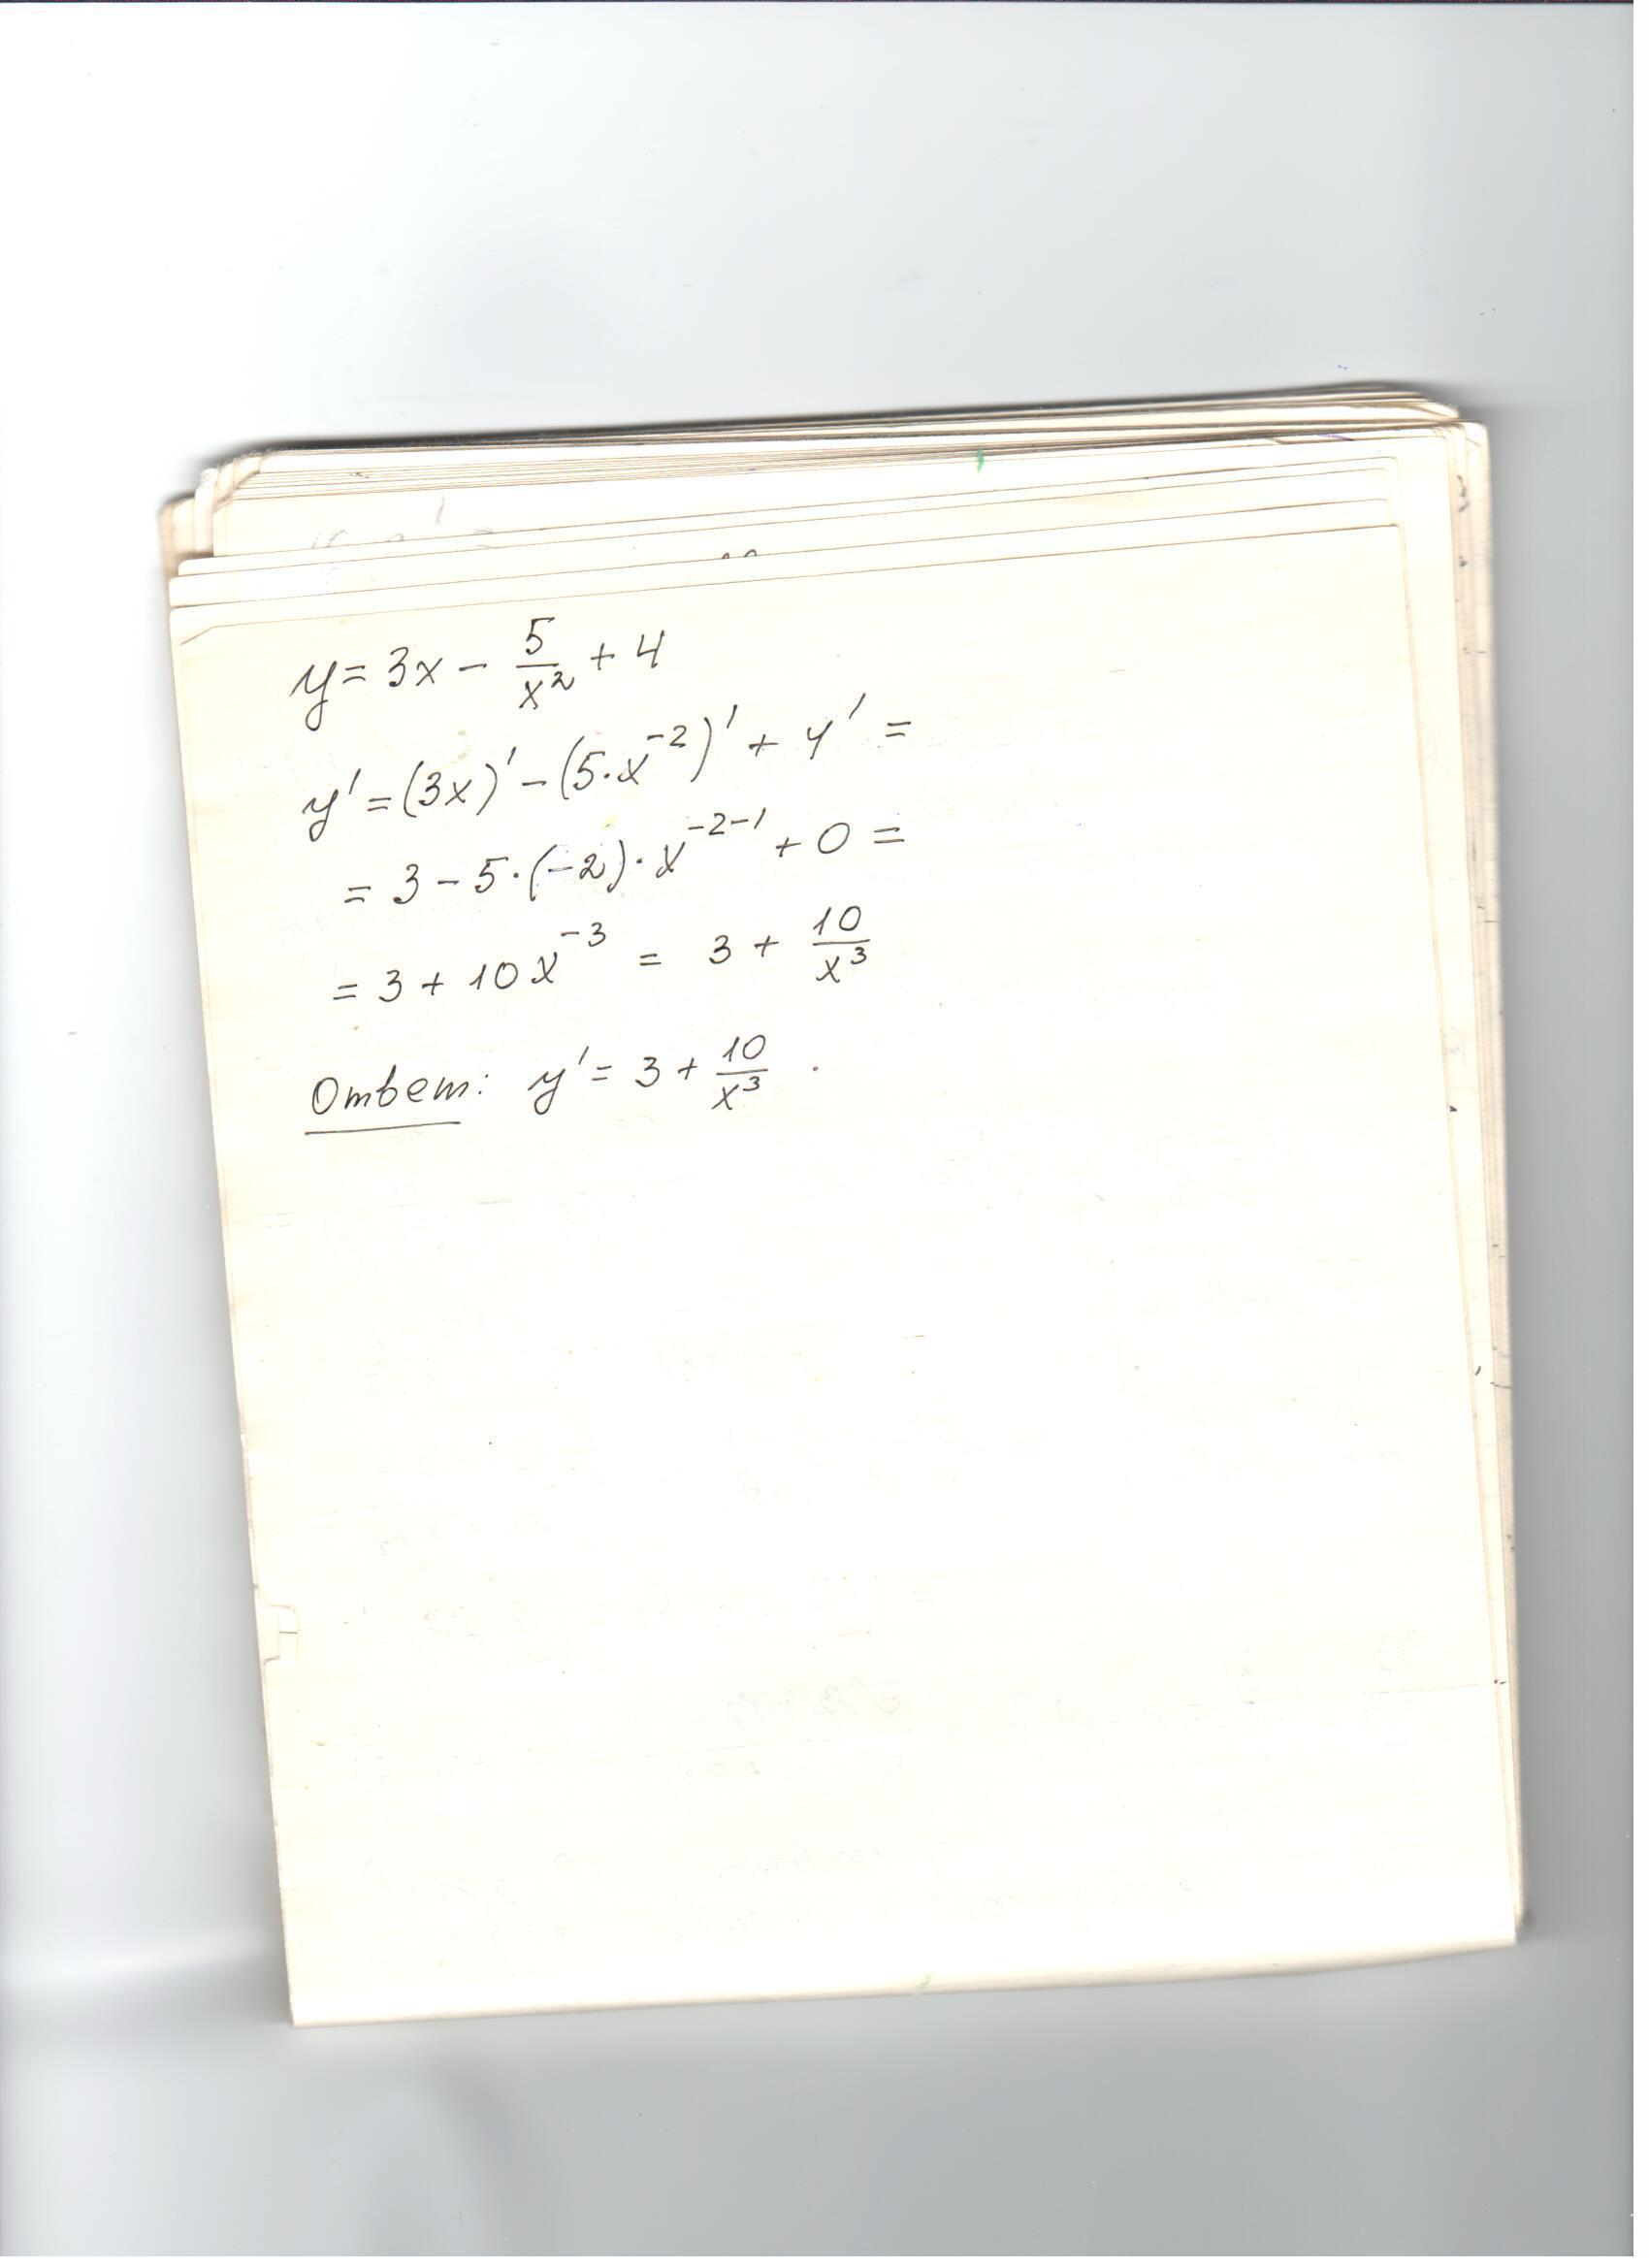 y = 3x - 5/x² + 4
y' = (3x)' - (5·x⁻²)' + 4' =
= 3 - 5·(-2)·x⁻²⁻¹ + 0 =
= 3 + 10x⁻³ = 3 + 10/x³
Ответ: y' = 3 + 10/x³ .